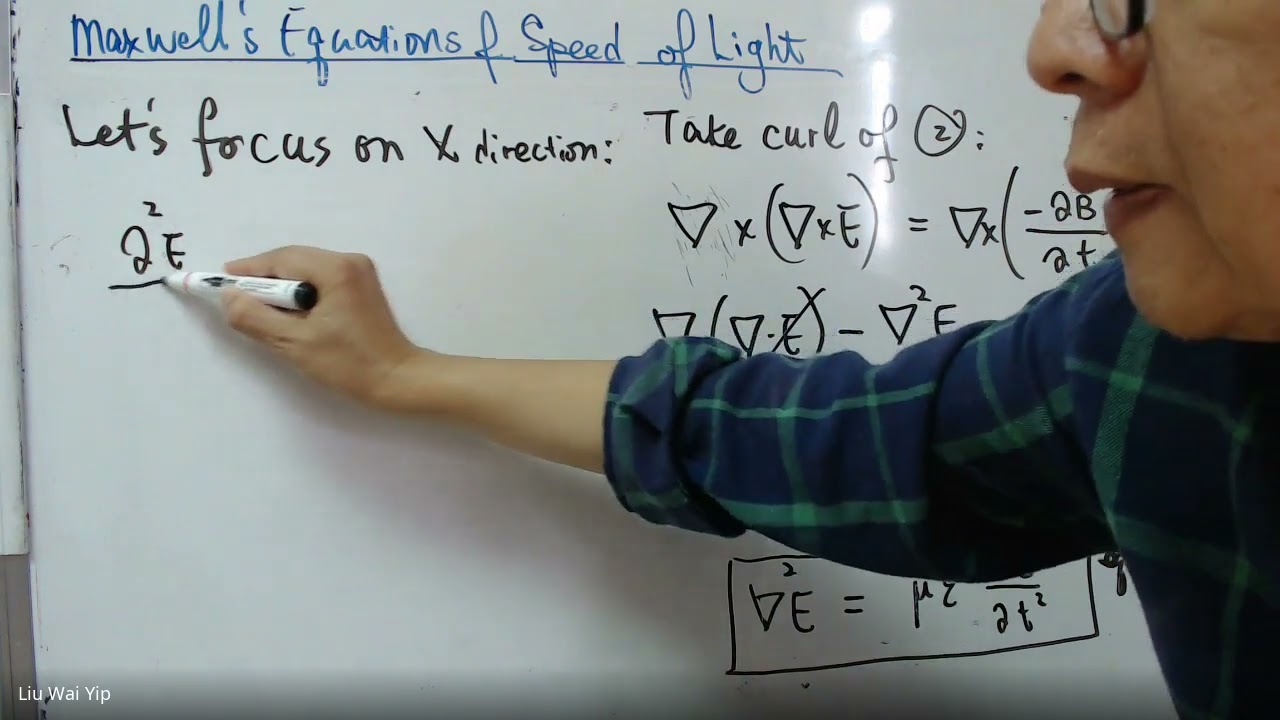 Maxwell's Equations & Speed of Light
Let's focus on X direction:
∂²E
Take curl of ②:
∇ x (∇xE) = ∇x(-∂B/∂t
∇(∇·E) - ∇²E
∇²E = με /∂t²
Liu Wai Yip